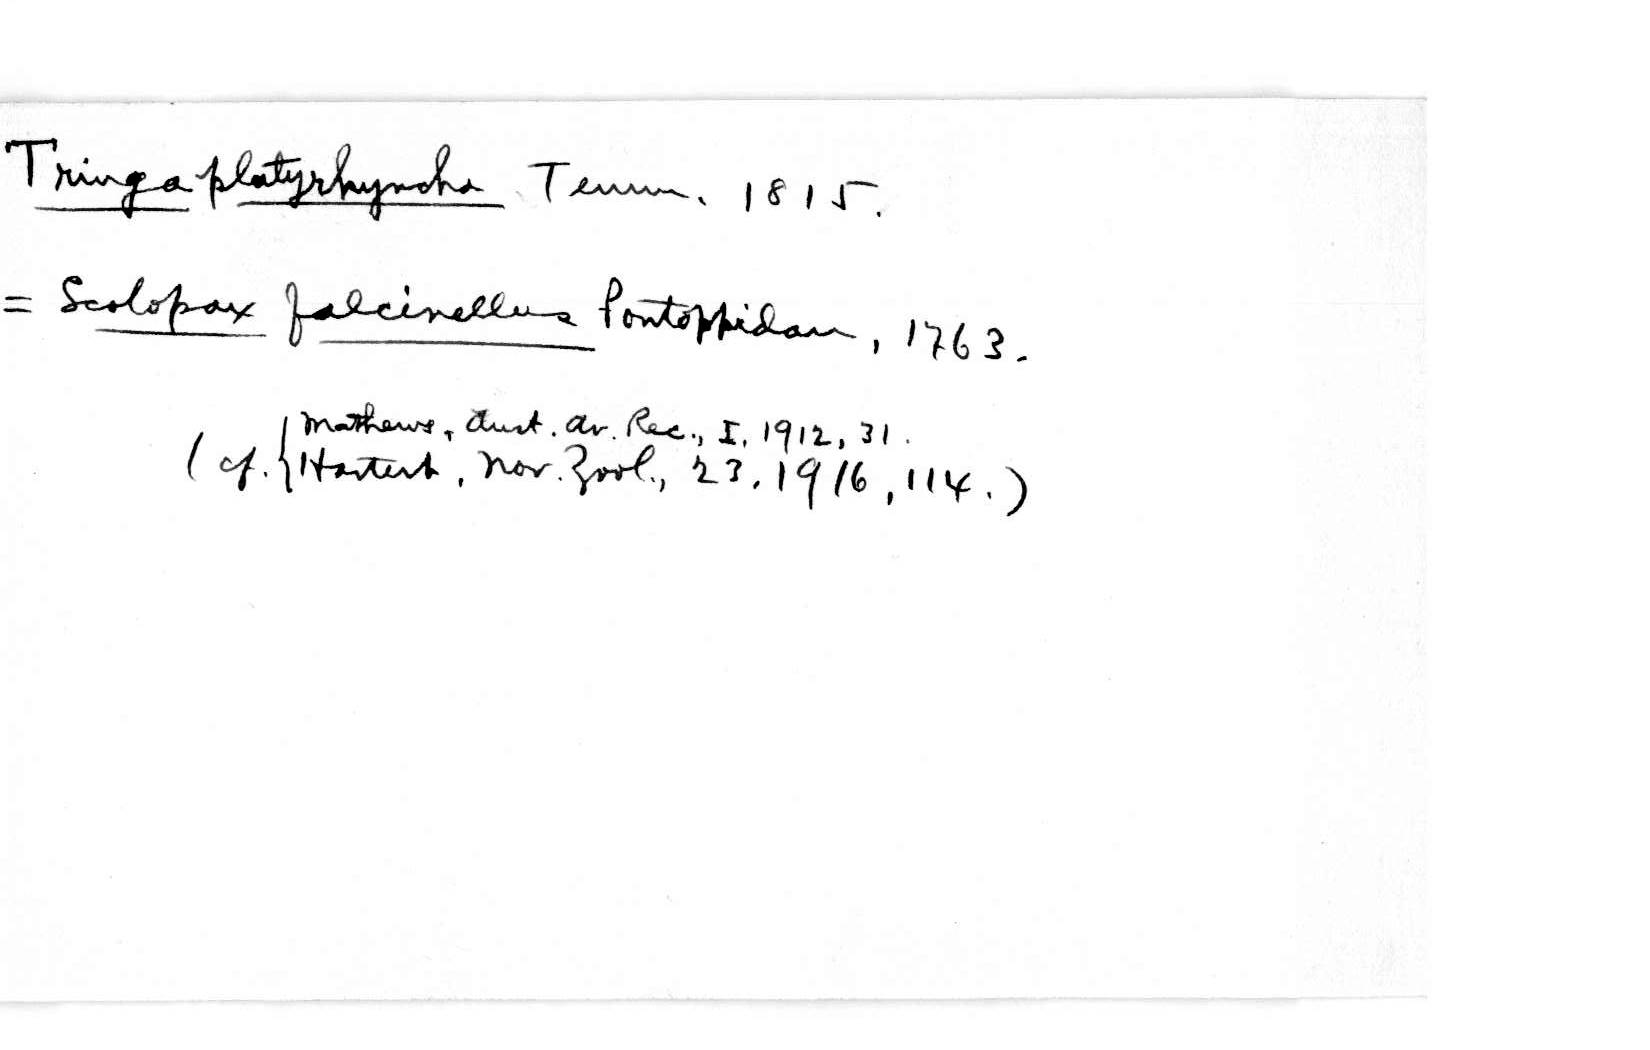 Tringa platyrhyncha Temm. 1815.
= Scolopax falcinellus Pontoppidan, 1763.
Mathews, Aust. Av. Rec., I, 1912, 31.
(cf. { Hartert, Nov. Zool., 23, 1916, 114.)